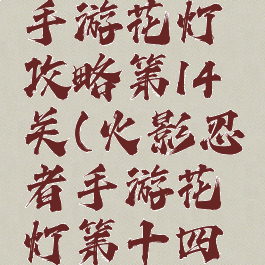 手游花灯
攻略第14
关(火影忍
者手游花
灯第十四